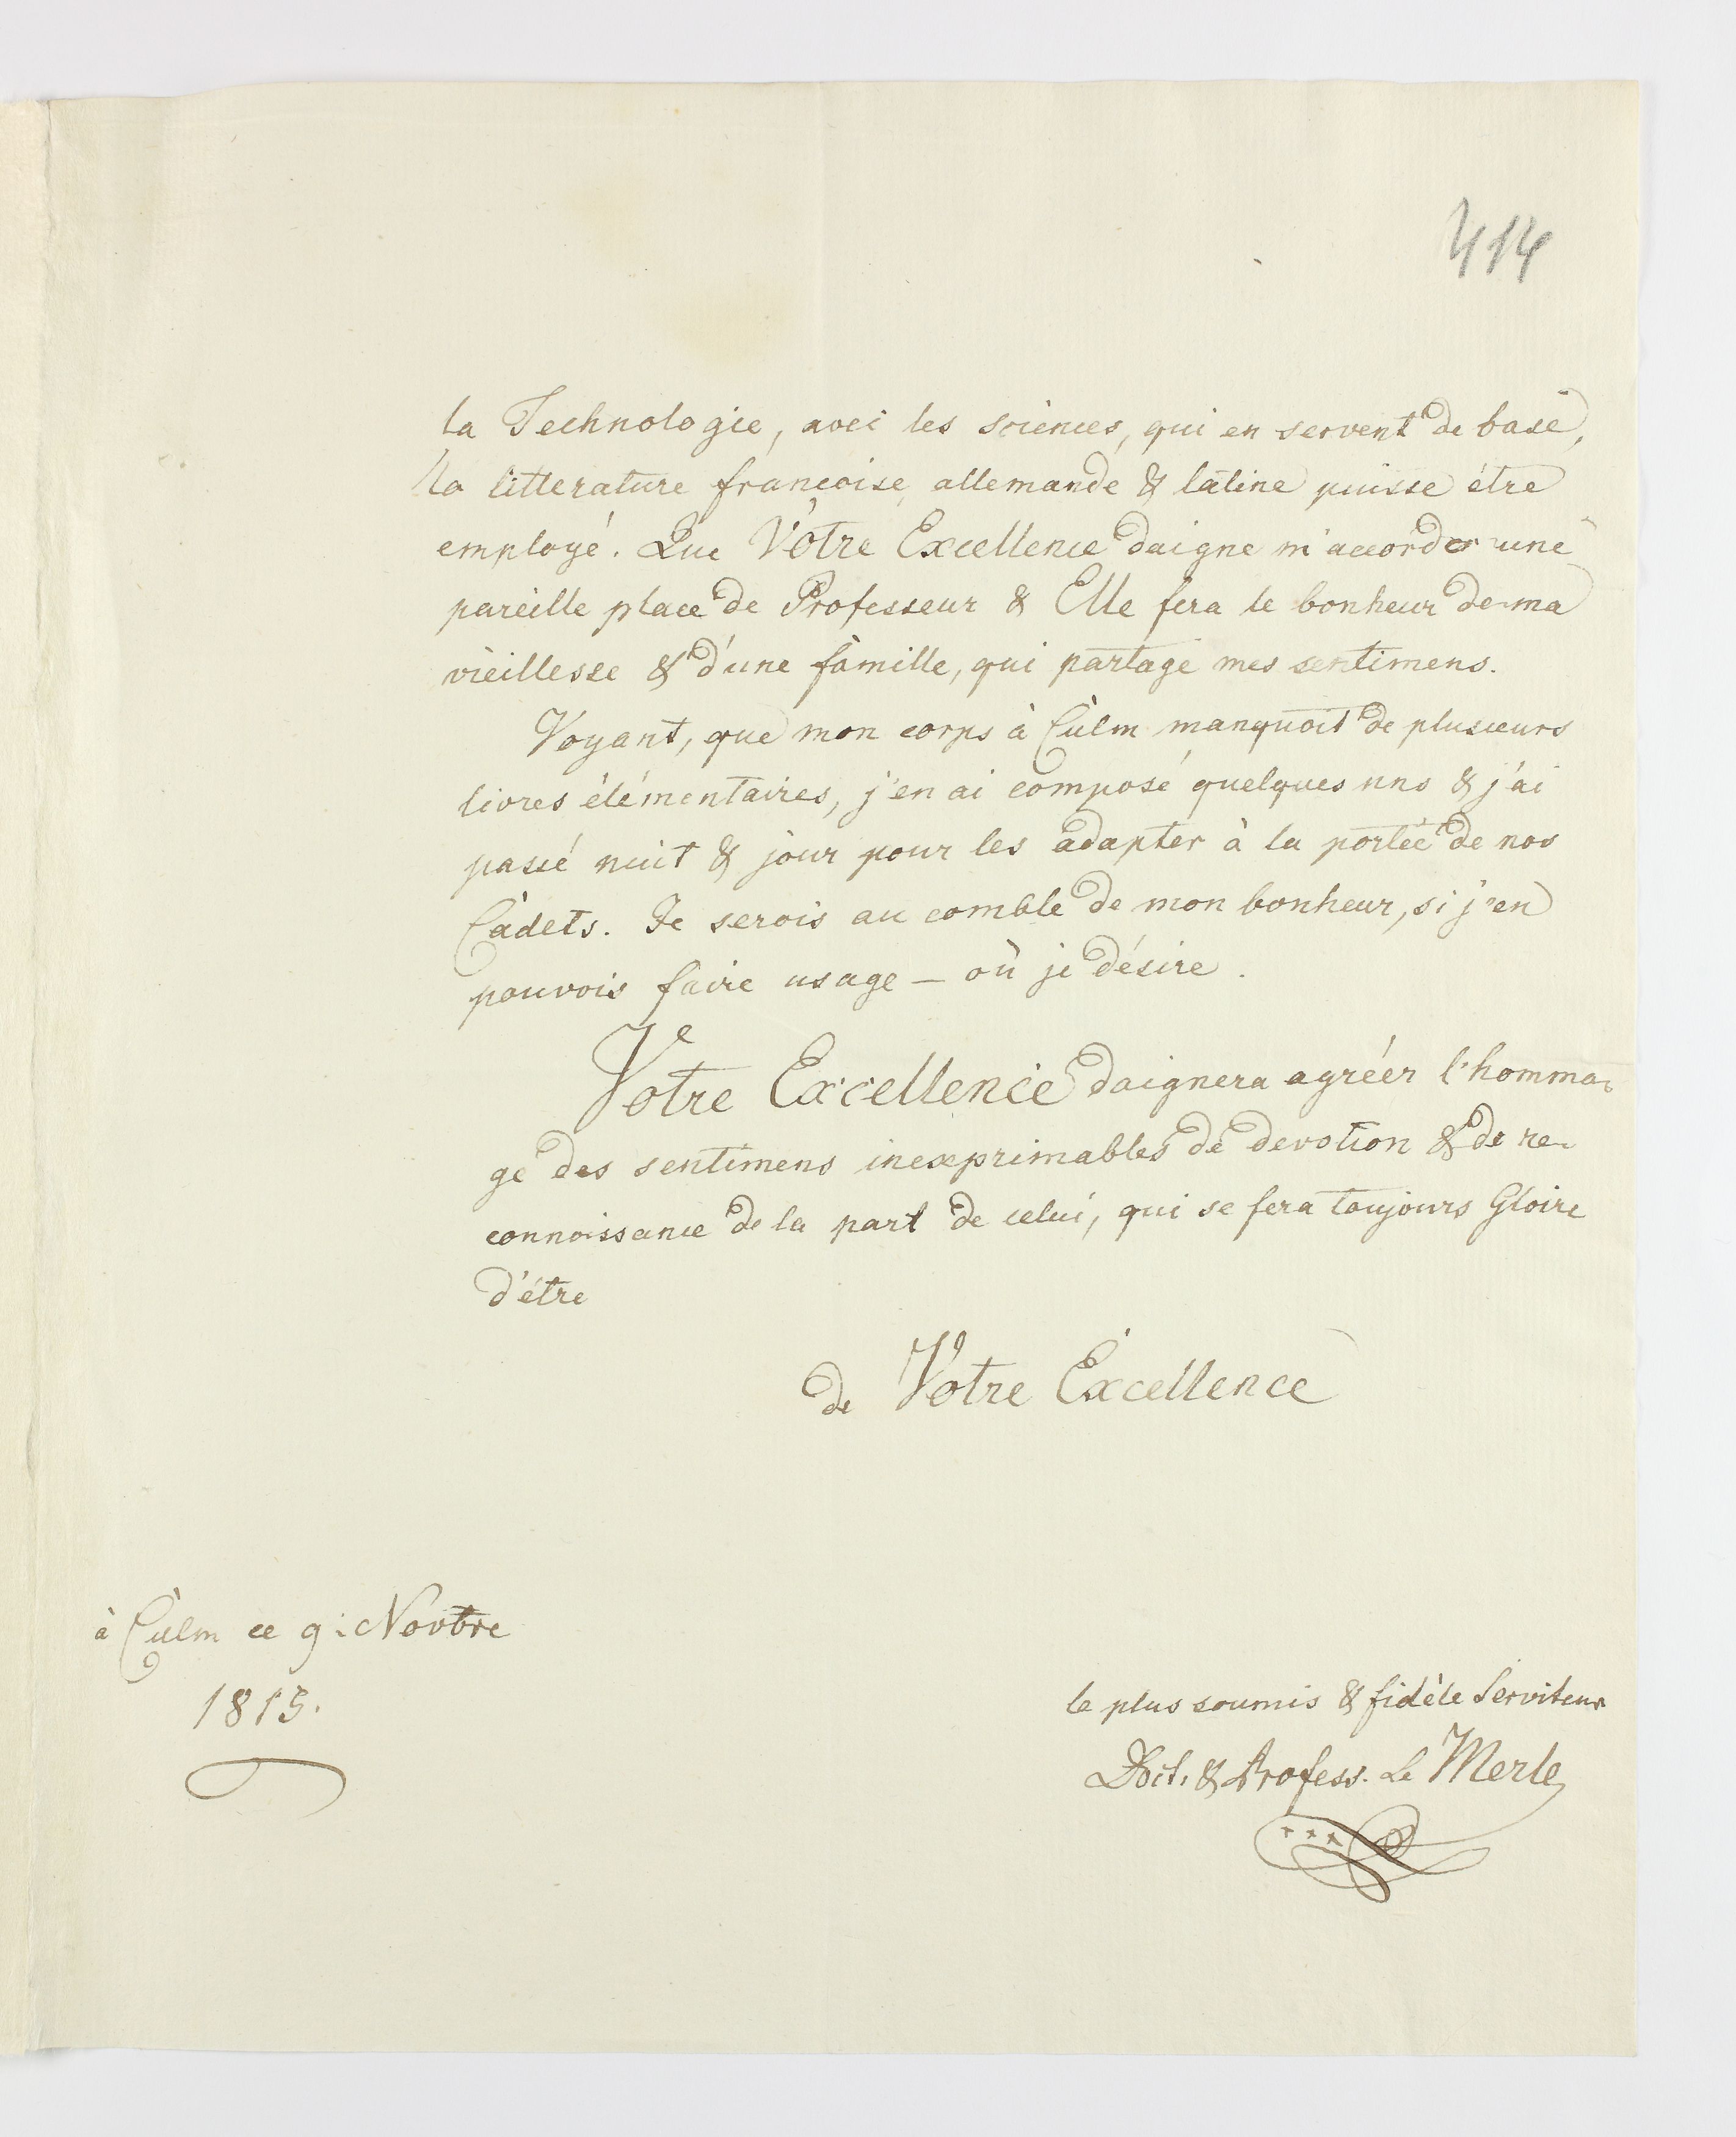 414
la Technologie, avec les sciences, qui en servent de base,
la litterature françoise, allemande & latine puisse être
employé. Que Vôtre Excellence daigne m'accorder une
pareille place de Professeur & Elle fera le bonheur de ma
vieillesse & d'une famille, qui partage mes sentimens.
Voyant, que mon corps à Culm manquoit de plusieurs
livres élémentaires, j'en ai composé quelques uns & j'ai
passé nuit & jour pour les adapter à la portée de nos
Cadets. Je serois au comble de mon bonheur, si j'en
pouvois faire usage — où je désire.
Votre Excellence daignera agréér l'homma-
ge des sentimens inexprimables de devotion & de re-
connoissance de la part de celui, qui se fera toujours Gloire
d'être
de Votre Excellence
à Culm ce 9: Novbre
1815.
le plus soumis & fidèle Serviteur
Doct. & Profess. Le Merle